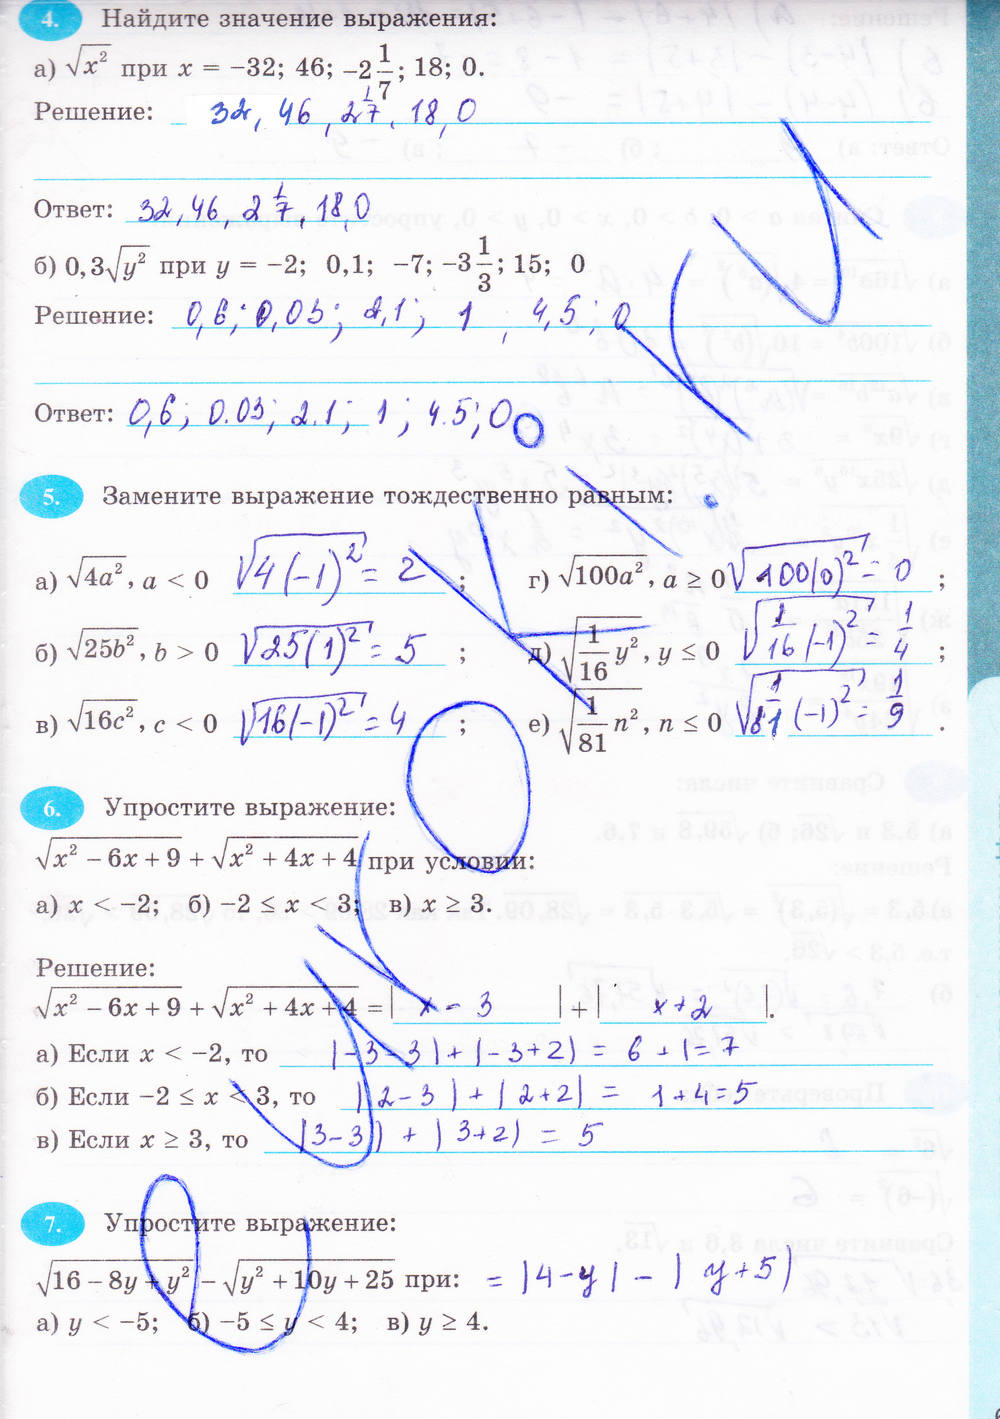 4. Найдите значение выражения:
а) √x² при x = −32; 46; −2 1/7; 18; 0.
Решение: 32, 46, 2 1/7, 18, 0
Ответ: 32, 46, 2 1/7, 18, 0
б) 0,3√y² при y = −2; 0,1; −7; −3 1/3; 15; 0
Решение: 0,6; 0,03; 2,1; 1; 4,5; 0
Ответ: 0,6; 0.03; 2.1; 1; 4.5; 0
5. Замените выражение тождественно равным:
а) √4a², a < 0 √4(−1)² = 2 ; г) √100a², a ≥ 0 √100(0)² = 0 ;
б) √25b², b > 0 √25(1)² = 5 ; д) √1/16 y², y ≤ 0 √1/16(−1)² = 1/4 ;
в) √16c², c < 0 √16(−1)² = 4 ; е) √1/81 n², n ≤ 0 √1/81(−1)² = 1/9 .
6. Упростите выражение:
√x² − 6x + 9 + √x² + 4x + 4 при условии:
а) x < −2; б) −2 ≤ x < 3; в) x ≥ 3.
Решение:
√x² − 6x + 9 + √x² + 4x + 4 = | x − 3 | + | x + 2 |.
а) Если x < −2, то |−3−3| + |−3+2| = 6 + 1 = 7
б) Если −2 ≤ x < 3, то |2−3| + |2+2| = 1+4=5
в) Если x ≥ 3, то |3−3| + |3+2| = 5
7. Упростите выражение:
√16 − 8y + y² − √y² + 10y + 25 при: = |4−y| − |y+5|
а) y < −5; б) −5 ≤ y < 4; в) y ≥ 4.